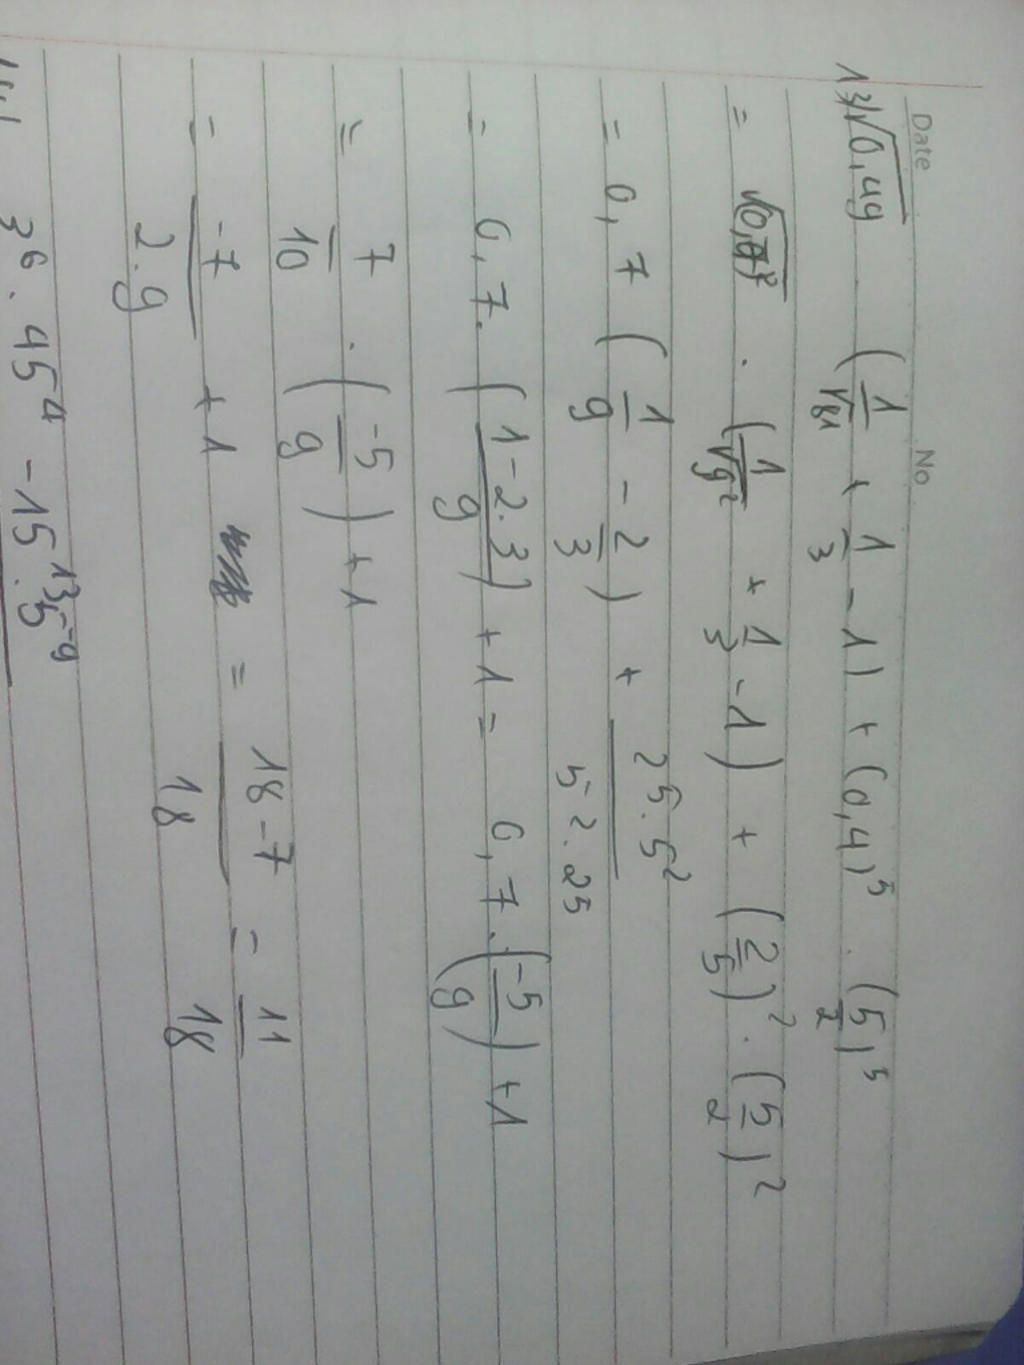 Date No
13) √0,49 (1/√81 + 1/3 - 1) + (0,4)⁵ . (5/2)⁵
= √(0,7)² . (1/√9² + 1/3 - 1) + (2/5)² . (5/2)²
= 0,7 (1/9 - 2/3) + 2⁵.5²/5².2⁵
= 0,7. (1-2.3/9) + 1 = 0,7.(-5/9) + 1
= 7/10 . (-5/9) + 1
= -7/2.9 + 1 = 18-7/18 = 11/18
3⁶ . 45⁴ - 15¹³.5⁻⁹